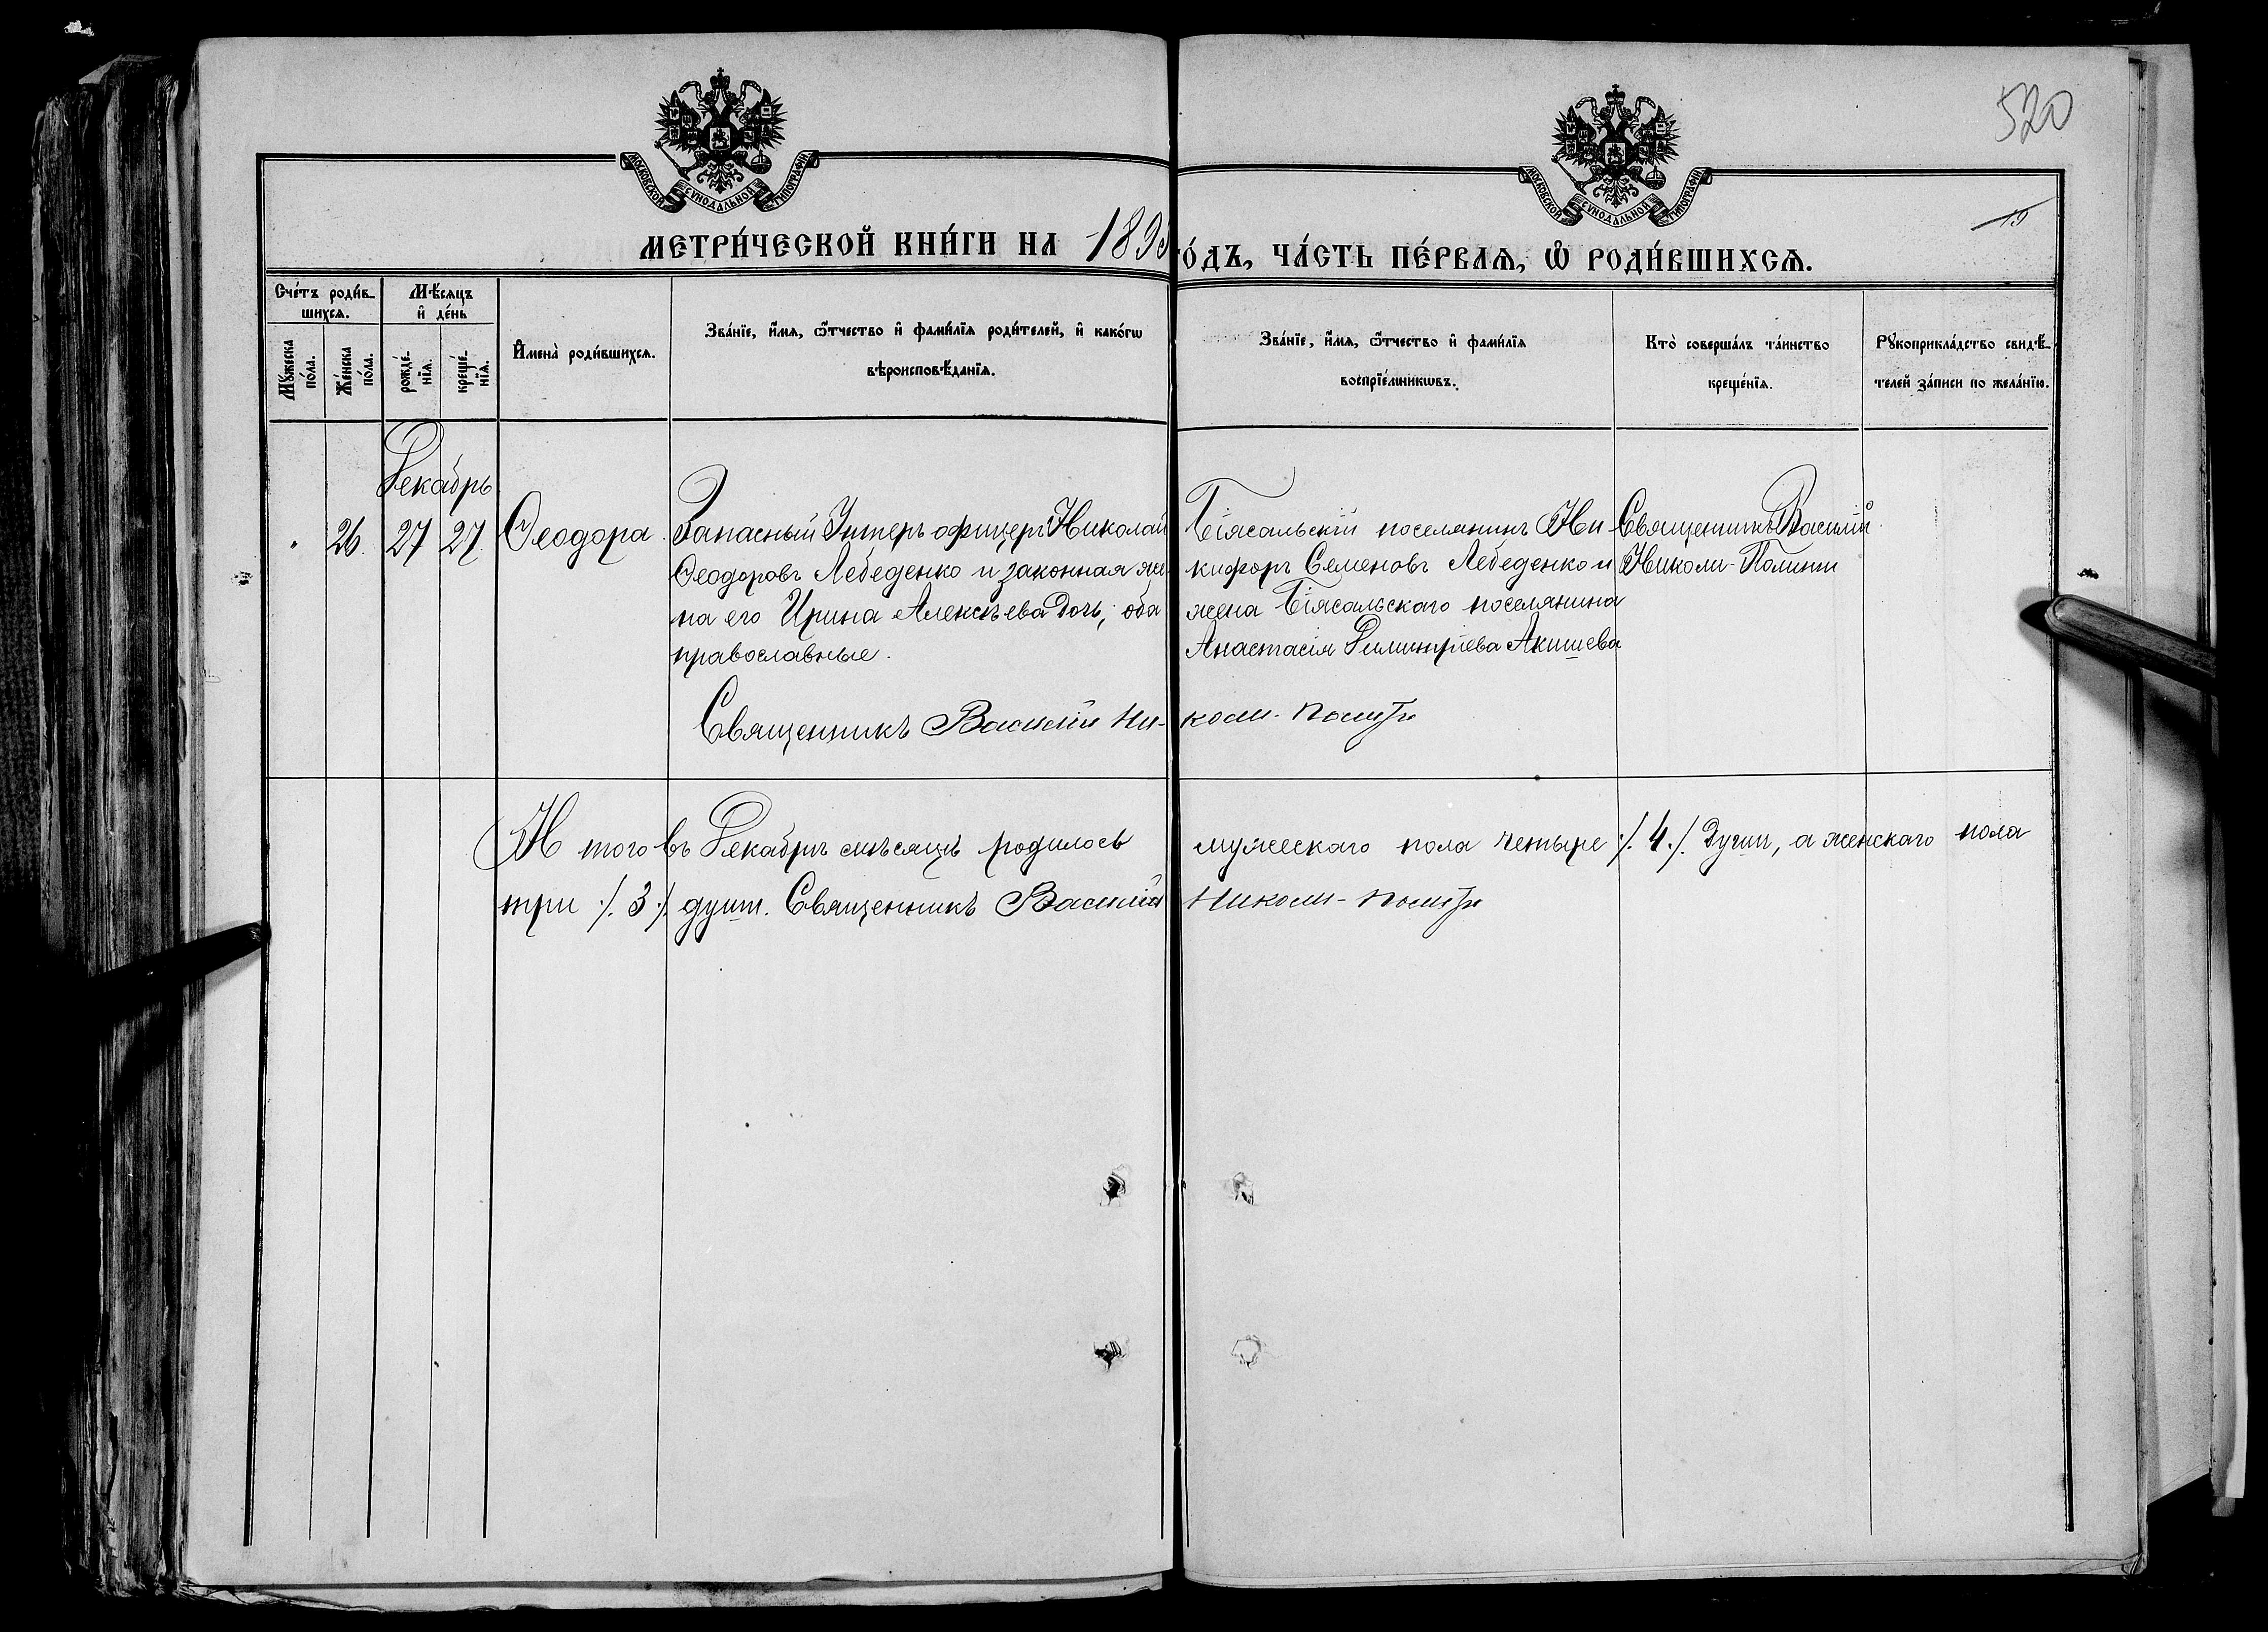 520
МОСКОВСКОЙ СѴНОДАЛЬНОЙ ТИПОГРАФІИ
МОСКОВСКОЙ СѴНОДАЛЬНОЙ ТИПОГРАФІИ
19
МЕТРИ́ЧЕСКОЙ КНИ́ГИ НА 189
О́ДЪ, ЧА́СТЬ ПЕ́РВАЯ, Ѡ҆ РОДИ́ВШИХСЯ.
Сче́тъ роди́в-
шихся.
Мꙋ́жеска по́ла.
Же́нска по́ла.
Мѣ́сяцъ
и҆ де́нь
рожде́-нїя.
креще́-нїя.
И҆мена̀ роди́вшихся.
Зва́нїе, и҆́мя, ѻ҆́тчество и҆ фами́лїя роди́телей, и҆ како́гѡ
вѣроисповѣ́данїя.
Зва́нїе, и҆́мя, ѻ҆́тчество и҆ фами́лїя
воспрїе́мникѡвъ.
Кто̀ соверша́лъ та́инство
креще́нїя.
Рꙋкоприкла́дство свидѣ́-
телей за́писи по жела́нїю.
Декабрь
26. 27 27. Ѳеодора.
Запасный Унтеръ офицеръ Николай
Ѳеодоровъ Лебеденко и законная же
на его Ирина Алексѣева дочь, оба
православные.
Біясальскій поселянинъ Ни-
кифоръ Семеновъ Лебеденко и
жена Біясальскаго поселянина
Анастасія Димитріева Акишева
Священникъ Василій
Николи-Полити
Священникъ Василій Ни-коли-Полити
И того въ Декабрѣ мѣсяцѣ родилось мужескаго пола четыре /.4./ души, а женскаго пола
три /.3./ души. Священникъ Василій Николи-Полити